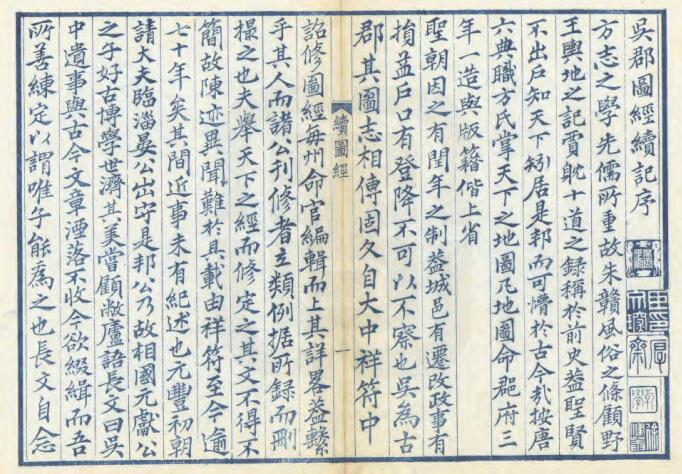 吳郡圖經續記序
方志之學先儒所重故朱贛風俗之條顧野
王輿地之記賈耽十道之錄稱於前史葢聖賢
不出戶知天下矧居是邦而可懵於古今哉按唐
六典職方氏掌天下之地圖凡地圖命郡府三
年一造與版籍偕上省
聖朝因之有閏年之制葢城邑有遷改政事有
損益戶口有登降不可以不察也吳為古
郡其圖志相傳固久自大中祥符中
續圖經
一
詔修圖經每州命官編輯而上其詳畧葢繫
乎其人而諸公刊修者立類例据所錄而刪
撮之也夫舉天下之經而修定之其文不得不
簡故陳迹異聞難於具載由祥符至今逾
七十年矣其間近事未有紀述也元豐初朝
請大夫臨淄晏公出守是邦公乃故相國元獻公
之子好古博學世濟其美嘗顧敝廬語長文曰吳
中遺事與古今文章湮落不收今欲綴緝而吾
所善練定以謂唯子能為之也長文自念